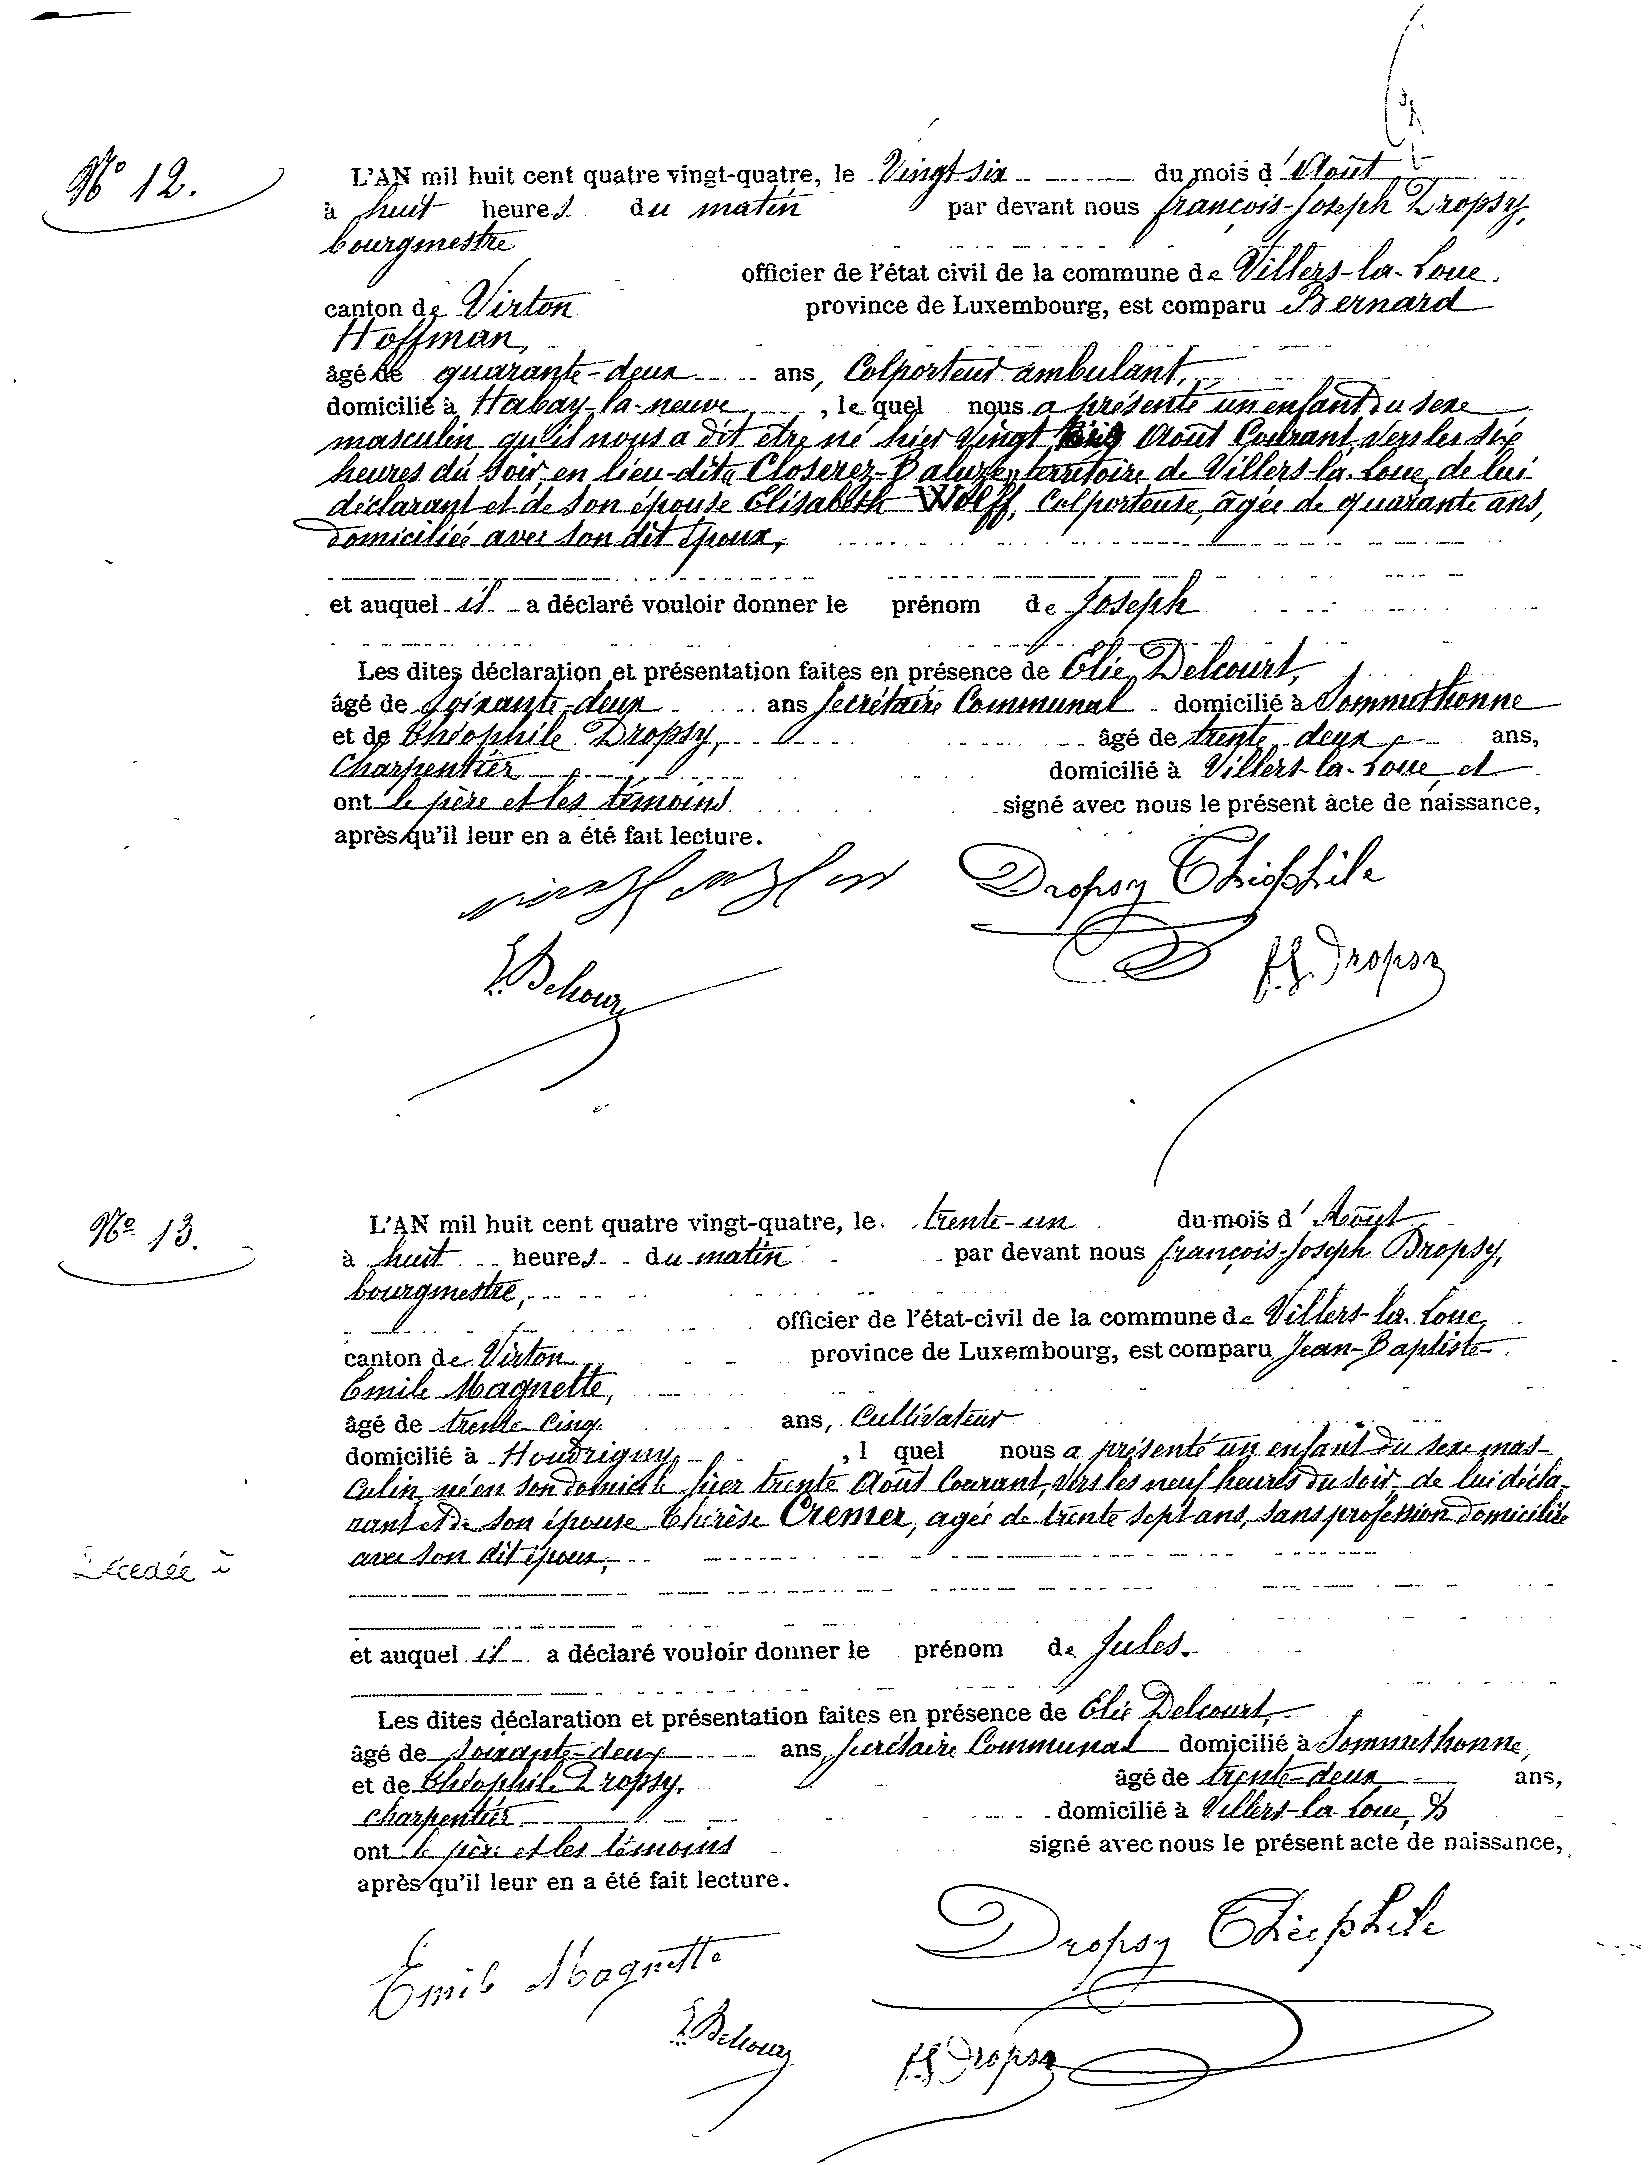 N° 12.
L'AN mil huit cent quatre vingt-quatre, le Vingt six du mois d'Août
à huit heures du matin par devant nous françois-Joseph Dropsy,
bourgmestre
officier de l'état civil de la commune de Villers-la-Loue.
canton de Virton province de Luxembourg, est comparu Bernard
Hoffman,
âgé de quarante-deux ans, Colporteur ambulant,
domicilié à Habay-la-neuve, le quel nous a présenté un enfant du sexe
masculin, qu'il nous a dit être né hier Vingt Août Courant, vers les six
heures du soir, en lieu-dit Closerez-Baluze, territoire de Villers-la-Loue, de lui
déclarant et de son épouse Elisabeth Wolff, Colporteuse, agée de quarante ans,
domiciliée avec son dit époux,
et auquel il a déclaré vouloir donner le prénom de Joseph
Les dites déclaration et présentation faites en présence de Elie Delcourt,
âgé de Soixante-deux ans Secrétaire Communal domicilié à Sommethonne
et de Théophile Dropsy, âgé de trente deux ans,
Charpentier domicilié à Villers-la-Loue, et
ont le père et les témoins signé avec nous le présent acte de naissance,
après qu'il leur en a été fait lecture.
Dropsy Théophile
E. Delcour
f. J. Dropsy
N° 13.
L'AN mil huit cent quatre vingt-quatre, le trente-un du mois d'Août
à huit heures du matin par devant nous françois-Joseph Dropsy,
bourgmestre,
officier de l'état-civil de la commune de Villers-la-Loue,
canton de Virton province de Luxembourg, est comparu Jean-Baptiste
Emile Magnette,
âgé de trente Cinq ans, Cultivateur
domicilié à Houdrigny, l quel nous a présenté un enfant du sexe mas-
culin, né en son domicile hier trente Août Courant, vers les neuf heures du soir, de lui décla-
rant et de son épouse Thérèse Cremer, agée de trente sept ans, sans profession domiciliée
avec son dit époux,
Décédée à
et auquel il a déclaré vouloir donner le prénom de Jules.
Les dites déclaration et présentation faites en présence de Elie Delcourt,
âgé de Soixante-deux ans, Secrétaire Communal domicilié à Sommethonne,
et de Théophile Dropsy, âgé de trente-deux ans,
charpentier domicilié à Villers-la Loue, &
ont le père et les témoins signé avec nous le présent acte de naissance,
après qu'il leur en a été fait lecture.
Dropsy Théophile
Emile Magnette
E. Delcour
f J Dropsy